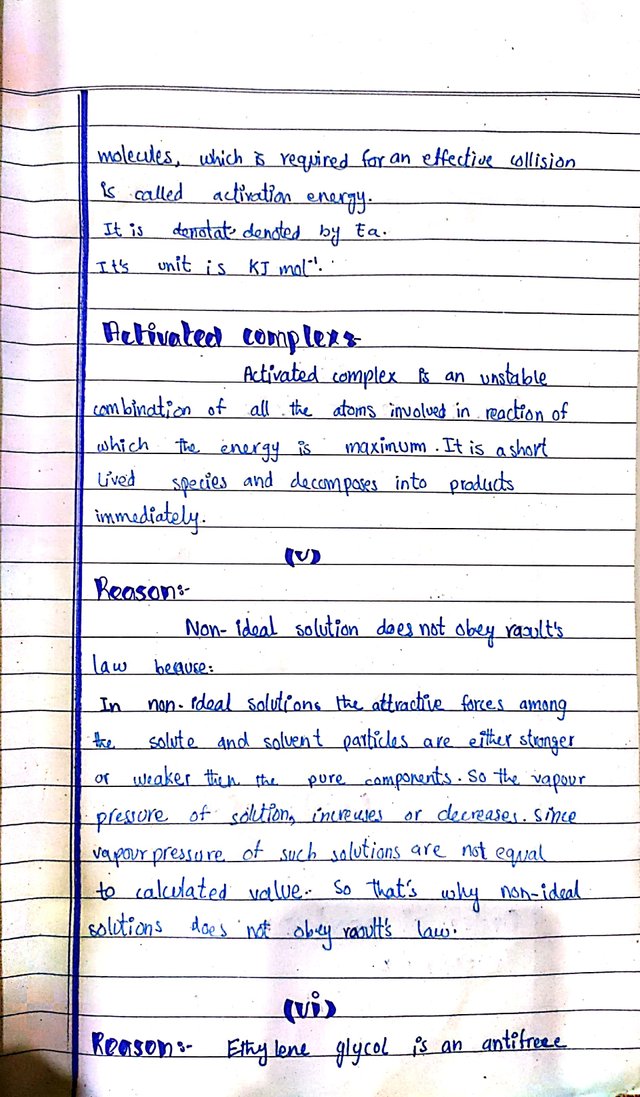 molecules, which is required for an effective collision
is called activation energy.
It is denotat denoted by Ea.
It's unit is KJ mol⁻¹.
Activated complex:-
Activated complex is an unstable
combination of all the atoms involved in reaction of
which the energy is maximum. It is a short
lived species and decomposes into products
immediately.
(v)
Reason:-
Non-ideal solution does not obey raoult's
law beause:
In non-ideal solutions the attractive forces among
the solute and solvent particles are either stronger
or weaker then the pure components. So the vapour
pressure of solution, increases or decreases. Since
vapour pressure of such solutions are not equal
to calculated value. So that's why non-ideal
solutions does not obey raoult's law.
(vi)
Reason:- Ethylene glycol is an antifreee